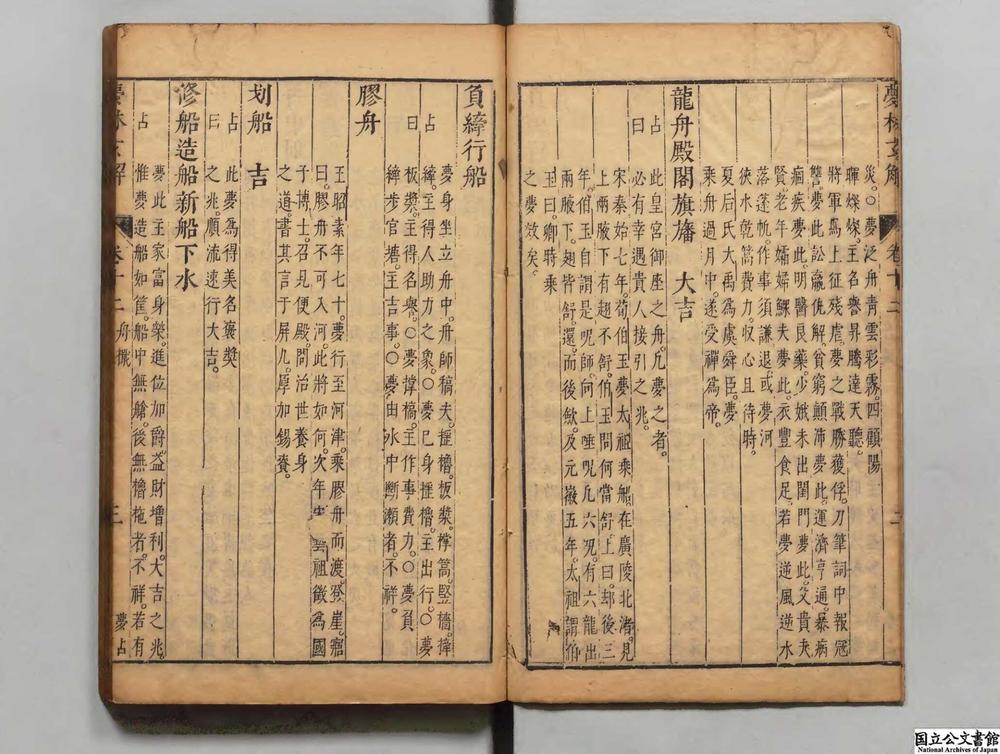 災。〇夢泛舟青雲彩霧。四顧陽
暉燦爛。主名譽昇騰達天聽。
將軍爲上征殘虐。夢之戰勝獲俘。刀筆詞中報冦
讐。夢此訟贏仇解。貧窮顛沛夢此。運濟亨通。暴病
痼疾夢此。明醫良藥。少娥未出閨門夢此。父貴夫
賢。老年孀婦鰥夫夢此。衣豐食足。若夢逆風逆水
落蓬帆。作事須謙退。或夢河
俠水乾篙費力。収心且待時。
夏后氏大禹爲虞舜臣。夢
乘舟過月中。遂受禪爲帝。
龍舟殿閣旗旛　大吉
占此皇宮御座之舟。凡夢之者。
曰必有幸遇貴人接引之兆。
宋泰始七年。荀伯玉夢太祖乘船。在廣陵北渚。見
上兩腋下有翅不舒。伯玉問何當舒。上曰。却後三
年。伯玉自謂是呪師。向上唾呪。凡六呪。有六龍出
兩腋下。翅皆舒還。而後歛。及元徽五年。太祖謂伯
玉曰。卿時乘
之夢效矣。
負縴行船
夢身坐立舟中。舟師稿夫。捱櫓。板槳。撑篙。竪檣。捧
占縴。主得人助力之象。〇夢已身捱櫓。主出行。〇夢
曰板槳。主得名譽。〇夢撑稿。主作事費力。〇夢負
縴步官塘。主吉事。〇夢由氷中斷瀨者。不祥。
膠舟
王昭素年七十。夢行至河津。乘膠舟而渡。登崖。寤
曰。膠舟不可入河。此將如何。次年宋藝祖徵爲國
子博士。召見便殿。問治世養身
之道。書其言于屏几。厚加錫賚。
划船　吉
占此夢爲得美名褒奬
曰之兆。順流速行大吉。
修船造船新船下水
夢此主家富身榮。進位加爵。益財增利。大吉之兆。
占惟夢造船如筐。船中無艙。後無櫓柁者。不祥。若有
夢林玄解　卷十二　舟檝　三　夢占
国立公文書館
National Archives of Japan